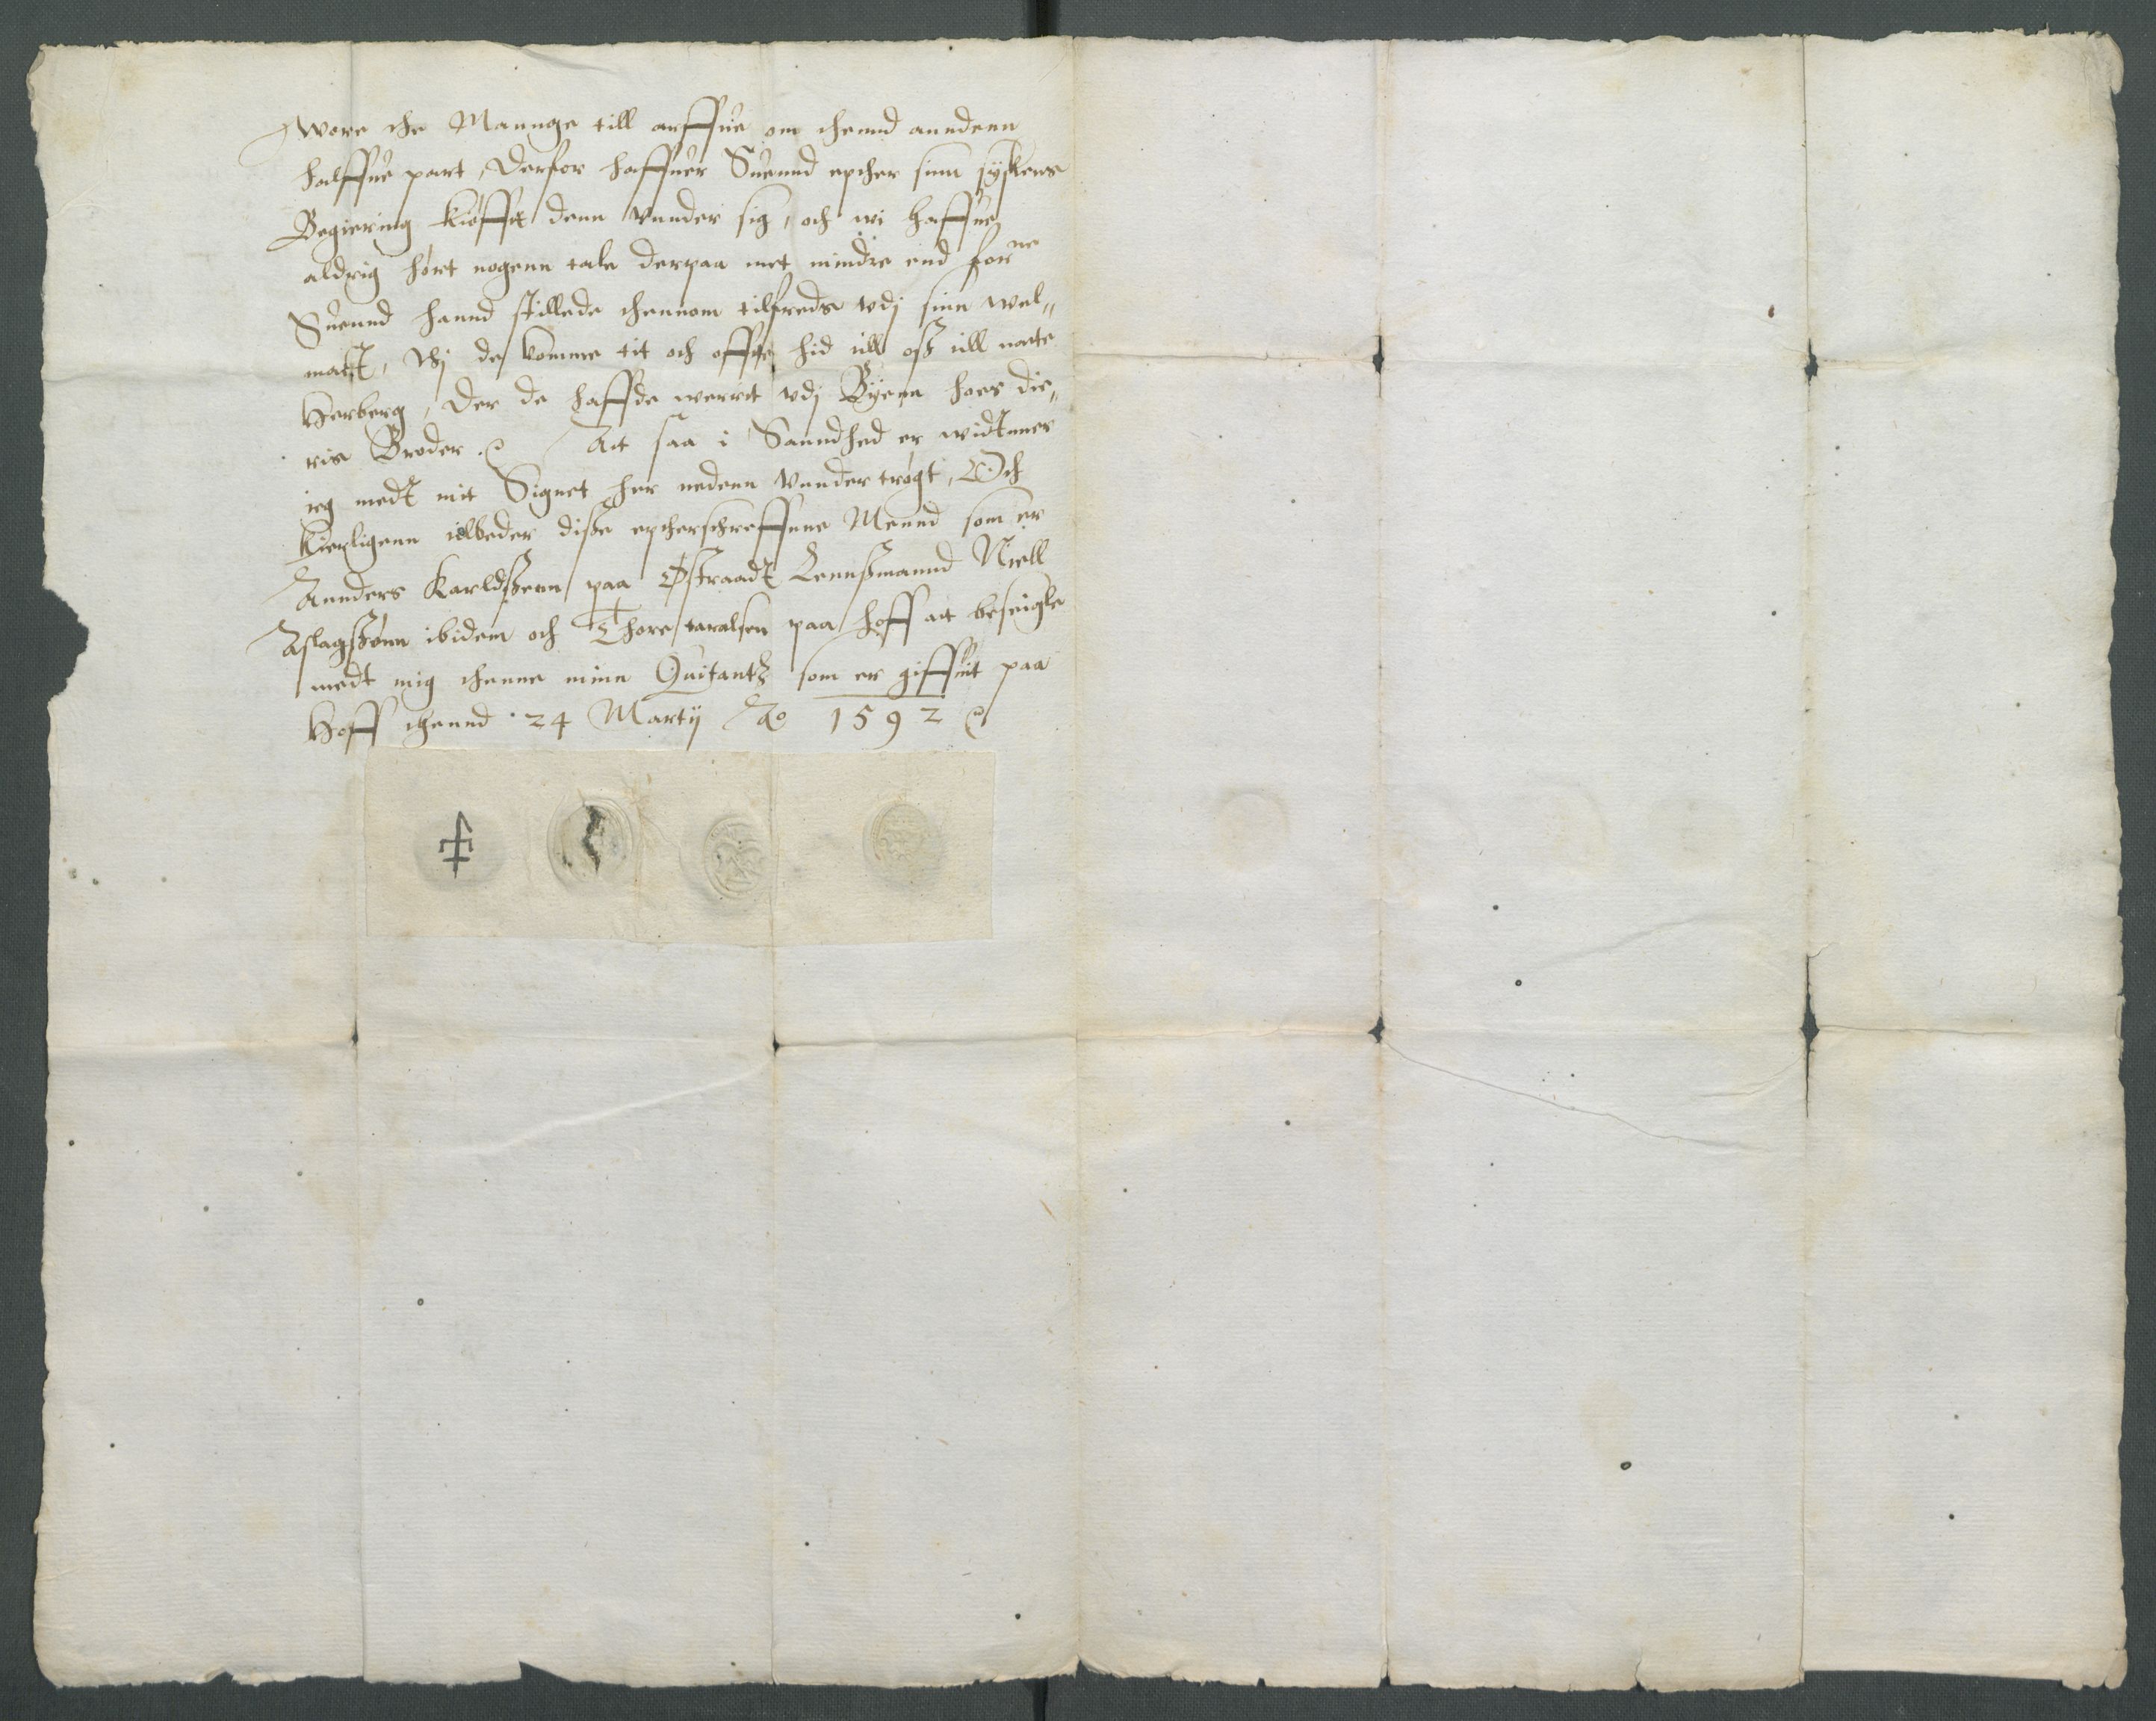 wore the Mannge till arffue om thennd anndenn
halffue part, derfor haffuer Suennd epther sinn syskens
Begiering kiøfft denn vnnder sig, och wi haffue
aldrig hørt nogenn tale derpaa met mindre end forne
Suennd hannd stillede thennom tilfreds vdj sinn wel„
matt, thj de komme tit och offte hid till oss till natte
Herberg, der de haffde werrit vdj Byenn hoes die„
ris Broder. Att saa i Sanndhed er widtnner
ieg medt mit Signet her nedenn vnnder trøgt, Och
kierligenn tilbeder disse eptherschreffnne Mennd som er
Annders Karldssenn paa Østraadt Lennssmannd Niell
Aslagssønn ibidem och Thore taralsen paa hoff att beseigle
medt mig thenne minn Quitantz som er giffuit paa
Hoff thennd 24 Martij Ao 1592